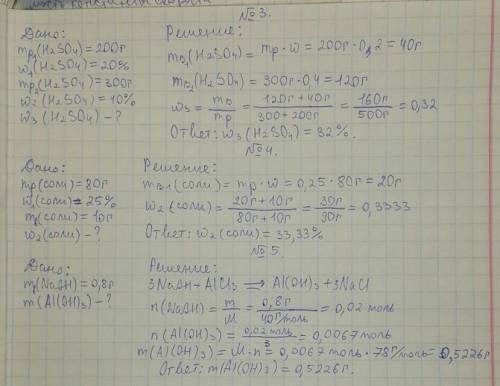 №3.
Дано:
mр₁(H₂SO₄)=200г
w₁(H₂SO₄)=20%
mр₂(H₂SO₄)=300г
w₂(H₂SO₄)=10%
w₃(H₂SO₄)-?
Решение:
mв₁(H₂SO₄)=mр·w=200г·0,2=40г
mв₂(H₂SO₄)=300г·0,4=120г
w₃=mв/mр=120г+40г/300+200г=160г/500г=0,32
Ответ: w₃(H₂SO₄)=32%.
№4.
Дано:
mр(соли)=80г
w₁(соли)=25%
m(соли)=10г
w₂(соли)-?
Решение:
mв₁(соли)=mр·w=0,25·80г=20г
w₂(соли)=20г+10г/80г+10г=30г/90г=0,3333
Ответ: w₂(соли)=33,33%
№5
Дано:
m(NaOH)=0,8г
m(Al(OH)₃)-?
Решение:
3NaOH+AlCl₃⇒Al(OH)₃+3NaCl
n(NaOH)=m/M=0,8г/40г/моль=0,02моль
n(Al(OH)₃)=0,02моль/3=0,0067моль
m(Al(OH)₃)=M·n=0,0067моль·78г/моль=0,5226г.
Ответ: m(Al(OH)₃)=0,5226г.